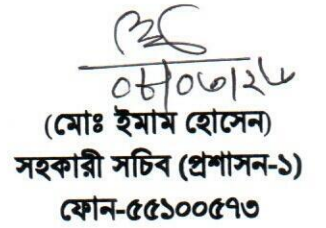 (মোঃ ইমাম হোসেন)
সহকারী সচিব (প্রশাসন-১)
ফোন-৫৫১০০৫৭৩